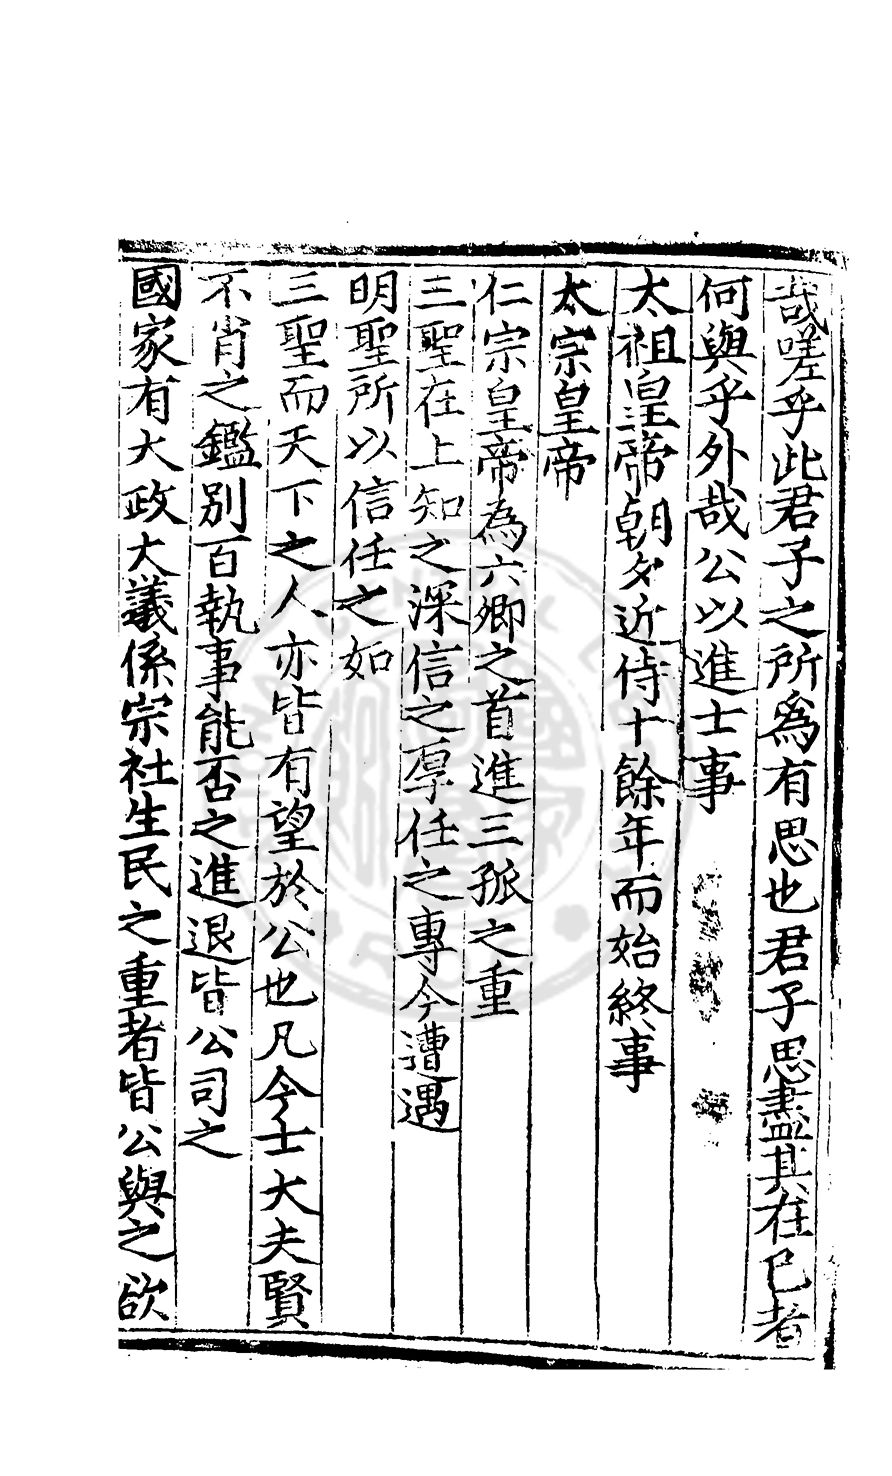 哉嗟乎此君子之所爲有思也君子思盡其在已者
何與乎外哉公以進士事
太祖皇帝朝夕近侍十餘年而始終事
太宗皇帝
仁宗皇帝為六卿之首進三孤之重
三聖在上知之深信之厚任之專今遭遇
明聖所以信任之如
三聖而天下之人亦皆有望於公也凡今士大夫賢
不肖之鑑別百執事能否之進退皆公司之
國家有大政大議係宗社生民之重者皆公與之欲